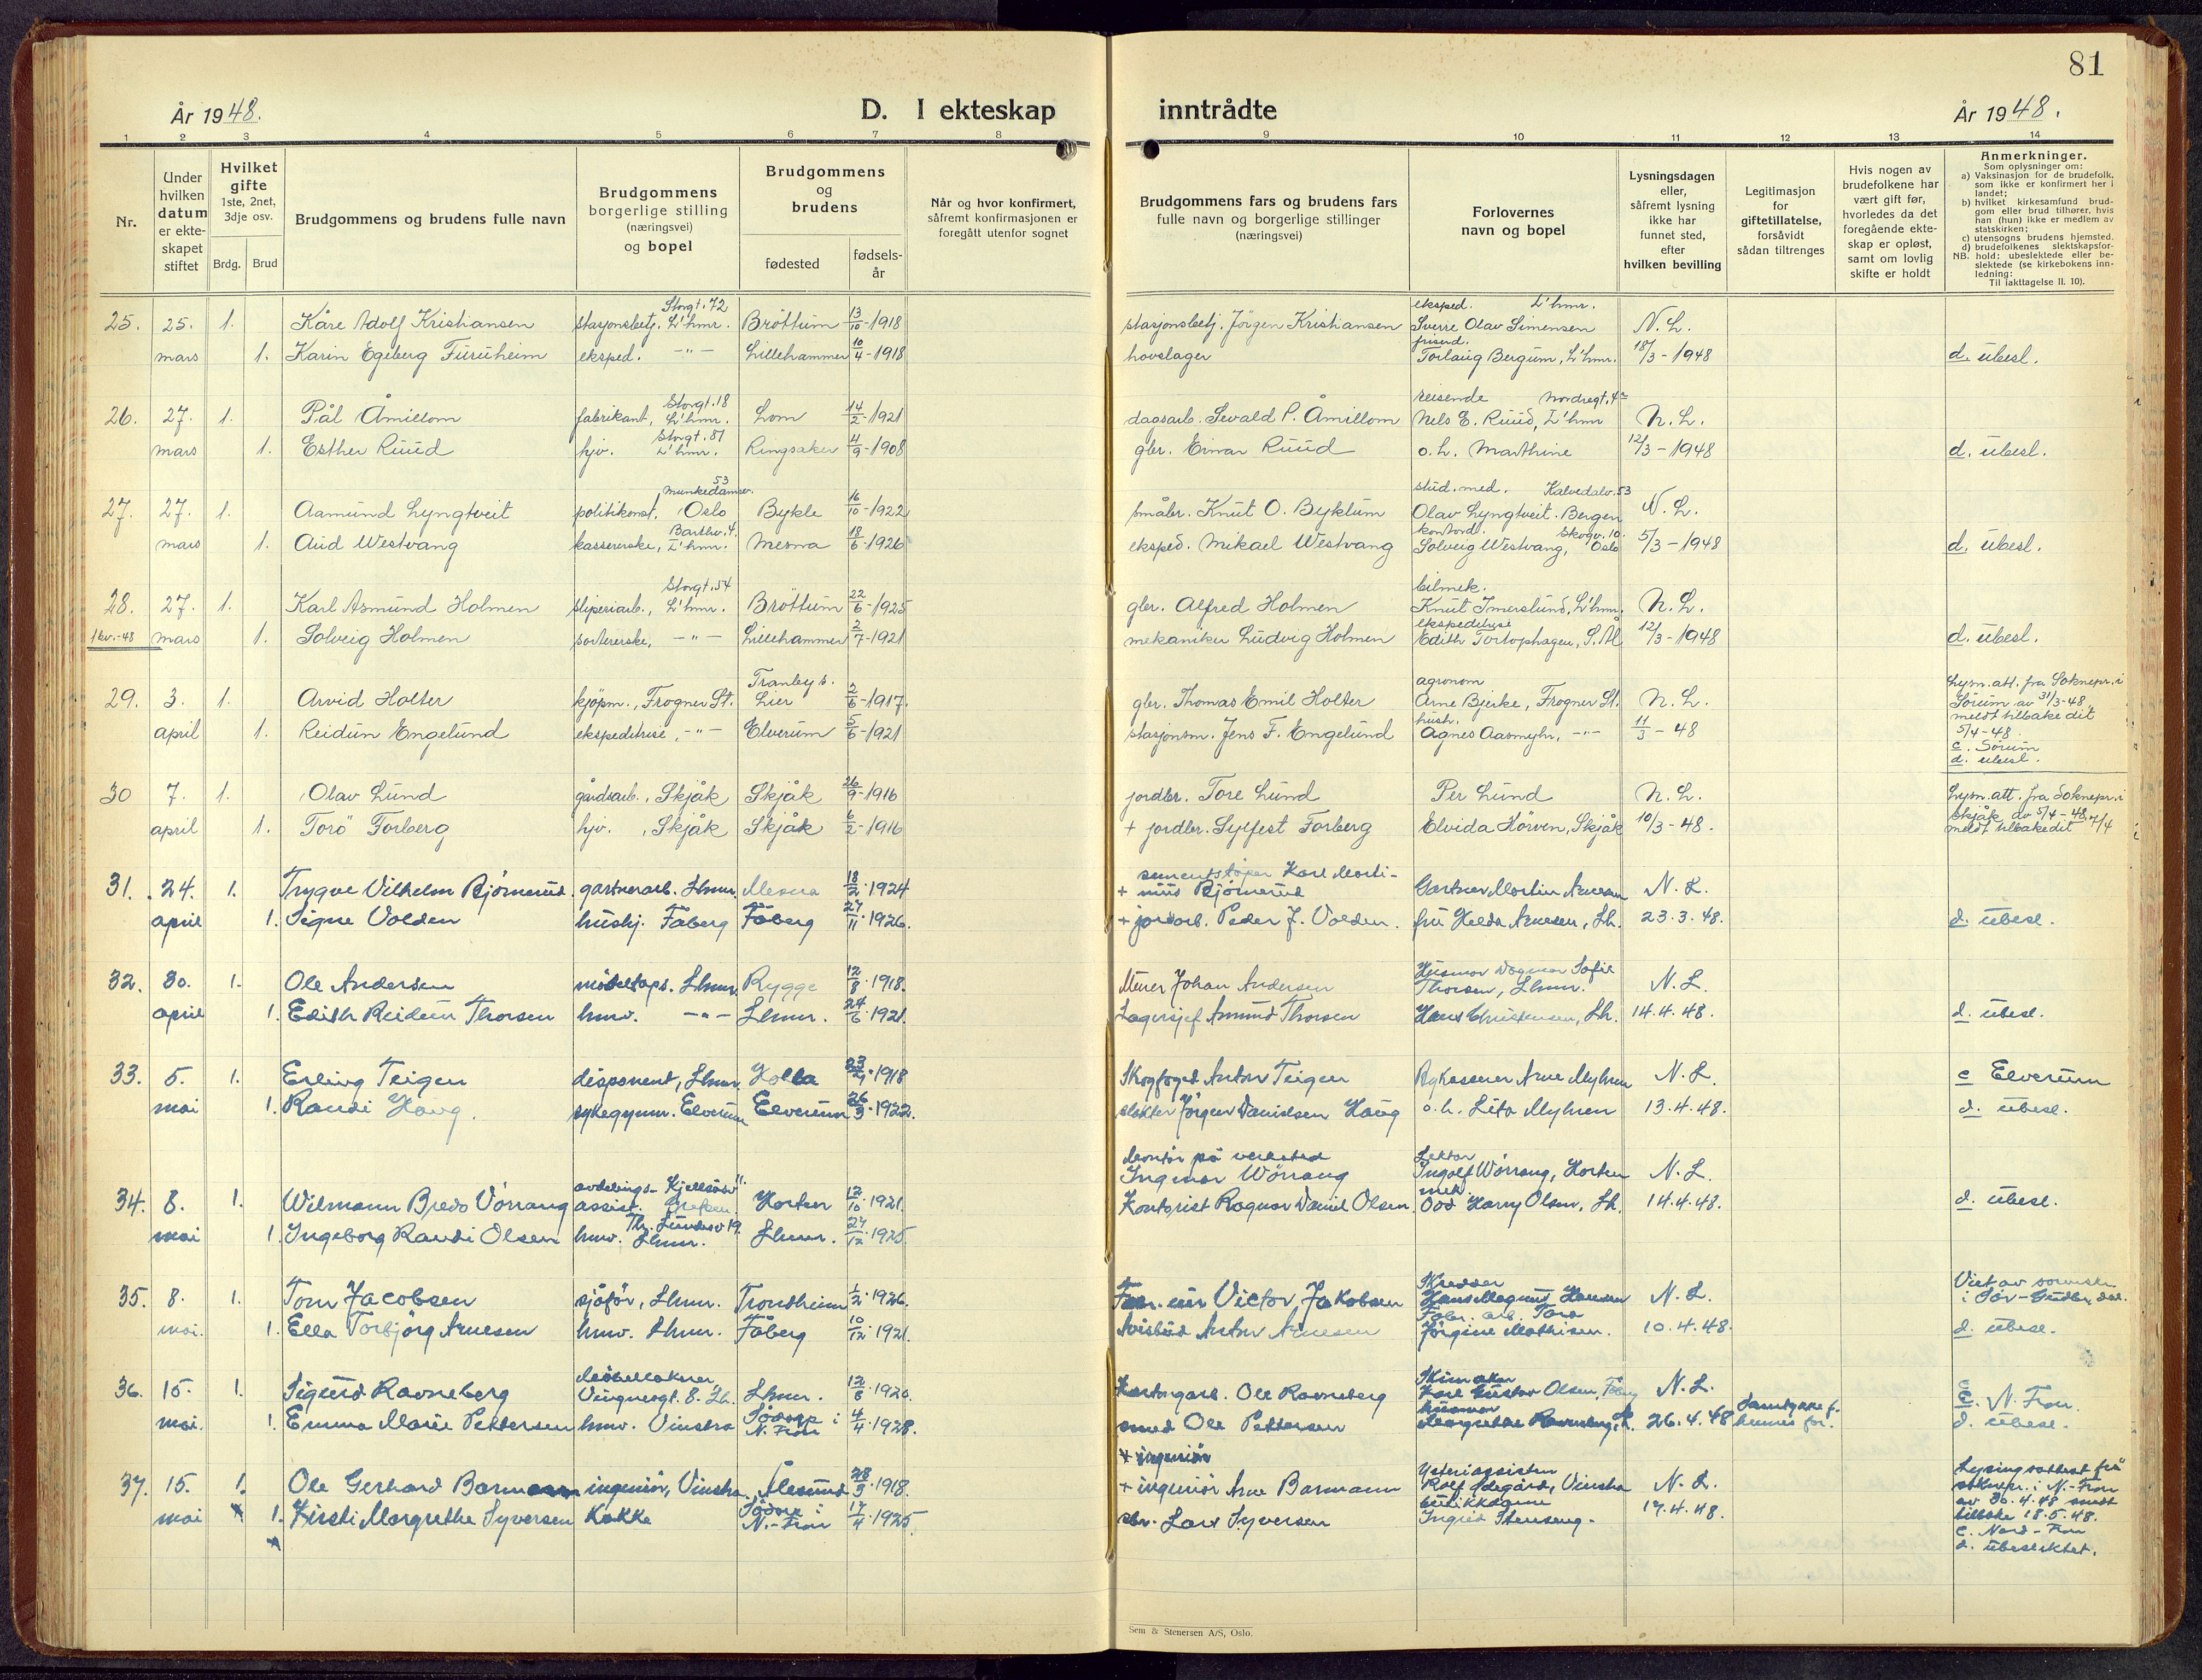 81
År 1948.
D. I ekteskap inntrådte
År 1948.
1 2 3 4 5 6 7 8 9 10 11 12 13 14
Nr.
Under hvilken datum er ekteskapet stiftet
Hvilket gifte 1ste, 2net, 3dje osv.
Brdg. Brud
Brudgommens og brudens fulle navn
Brudgommens borgerlige stilling (næringsvei) og bopel
Brudgommens og brudens
fødested
fødselsår
Når og hvor konfirmert, såfremt konfirmasjonen er foregått utenfor sognet
Brudgommens fars og brudens fars fulle navn og borgerlige stillinger (næringsvei)
Forlovernes navn og bopel
Lysningsdagen eller, såfremt lysning ikke har funnet sted, efter hvilken bevilling
Legitimasjon for giftetillatelse, forsåvidt sådan tiltrenges
Hvis nogen av brudefolkene har vært gift før, hvorledes da det foregående ekteskap er opløst, samt om lovlig skifte er holdt
Anmerkninger.
Som oplysninger om:
a) Vaksinasjon for de brudefolk, som ikke er konfirmert her i landet;
b) hvilket kirkesamfund brudgom eller brud tilhører, hvis han (hun) ikke er medlem av statskirken;
c) utensogns brudens hjemsted.
d) brudefolkenes slektskapsforhold: ubeslektede eller beslektede (se kirkebokens innledning:
NB.
Til iakttagelse II. 10).
Storgt. 72 eksped. L'hmr.
25. 25. 1. Kåre Adolf Kristiansen stasjonsbetj. L'hmr. Bröttum 13/10-1918 stasjonsbetj. Jörgen Kristiansen Sverre Olav Simensen N. L.
mars 1. Karin Egeberg Furuheim eksped. -"- Lillehammer 10/4-1918 hovslager Torlaug Bergum, L'hmr. 18/3-1948 d. ubesl.
Storgt. 18 reisende Nordregt. 4
26. 27. 1. Pål Åmillom fabrikant, L'hmr. Lom 14/2-1921 dagsarb. Sevald P. Åmillom Nels E. Ruud, L'hmr N. L.
Storgt. 81
mars 1. Esther Ruud hjv. L'hmr. Ringsaker 4/9-1908 gbr. Einar Ruud o. h. Marthine 12/3-1948 d. ubesl.
Munkedamsv. 53 stud. med. Kalvedalv. 53
27. 27. 1. Aamund Lyngtveit politikonst. Oslo Bykle 16/10-1922 småbr. Knut O. Byklum Olav Lyngtveit. Bergen N. L.
Barthv. 4. kontord. Skogv. 10.
mars 1. Aud Westvang kassererske, L'hmr. Mesna 18/6-1926 eksped. Mikael Westvang Solveig Westvang, Oslo 5/3-1948 d. ubesl.
Storgt. 54 bilmek.
28. 27. 1. Karl Asmund Holmen sliperiarb., L'hmr. Bröttum 22/6-1925 gbr. Alfred Holmen Knut Imerslund, L'hmr. N. L.
1 kv.-48 mars 1. Solveig Holmen sortererske, -"- Lillehammer 2/7-1921 mekaniker Ludvig Holmen ekspeditrise Edith Tortophagen, S. Ål 12/3-1948 d. ubesl.
Tranby s. agronom
29. 3. 1. Arvid Holter kjöpm., Frogner St. Lier 2/6-1917. gbr. Thomas Emil Holter Arne Bjerke, Frogner St. N. L. Lysn.att. fra Soknepr. i Sörum av 31/3-48, meldt tilbake dit 5/4-48.
april 1. Reidun Engelund ekspeditrise, -"- Elverum 5/5-1921 stasjonsm. Jens F. Engelund hush. Agnes Aasmyhr, -"- 11/3-48 c. Sörum d. ubesl.
30 7. 1. Olav Lund gårdsarb., Skjåk Skjåk 26/9-1916 jordbr. Tore Lund Per Lund N. L. Lysn.att. fra Soknepr. i
april 1. Torö Forberg hjv., Skjåk Skjåk 6/2-1916 + jordbr. Sylfest Forberg Elvida Hörven, Skjåk 10/3-48. Skjåk av 5/4-48, meldt tilbake dit 7/4
31. 24. 1. Trygve Vilhelm Bjørnerud gartnerarb. Lhmr. Mesna 18/2.1924 + sementstøper Karl Martinius Bjørnerud Gartner Martin Arnesen N. L.
april 1. Signe Volden hushj. Fåberg Fåberg 27/11.1926. + jordarb. Peder J. Volden. fru Helda Arnesen, Lh. 23.3.48. d. ubesl.
32. 30. 1. Ole Andersen møbeltaps. Lhmr. Rygge 12/8.1918. Murer Johan Andersen Husmor Dagmar Sofie Thorsen, Lhmr. N. L.
april 1. Edith Reidun Thorsen hmv. -"- Lhmr. 24/6.1921. Lagersjef Amund Thorsen Hans Christensen, Lh. 14.4.48. d. ubesl.
33. 5. 1. Erling Teigen disponent, Lhmr. Holla 1918 Skogfoged Anton Teigen Arne Myhren N. L. c Elverum
mai 1. Randi Haug. sykegymn. Elverum Elverum 26/3.1922. slakter Jörgen Danielsen Haug o. h. Lita Myhren 13.4.48. d. ubesl.
avdelings- Kjelsåsv Montør på verksted Lektor
34. 8. 1. Wilmann Bredo Vörrang assist. Grefsen Horten 12/10.1921. Ingvar Wörrang Ingolf Wörrang, Horten N. L.
Th. Lundesv 19. mek.
mai 1. Ingeborg Randi Olsen hmv. Lhmr. Lhmr. 27/12.1925. Kontorist Ragnar Daniel Olsen Odd Harry Olsen, Lh. 14.4.48. d. ubesl.
35. 8. 1. Tom Jacobsen sjåför, Lhmr. Trondheim 1/2.1926. Victor Jakobsen Skredder Hans Magnus Hansen N. L. Viet av
i Sør-Gudbr. dal.
mai. 1. Ella Torbjörg Arnesen hmv. Lhmr. Fåberg 10/12.1921. Avisbud Anton Arnesen Fabr. arb. Jörgine Mathisen. 10.4.48. d. ubesl.
36. 15. 1. Sigurd Ravneberg Møbelsnekker, Vingnesgt. 8. Lh. Lhmr. 12/6.192 Ole Ravneberg Karl Gustav Olsen, N. L. c. N. Fron.
mai. 1. Emma Marie Pettersen hmv. Vinstra Sødorp i N. Fron 4/4.1928. smed Ole Pettersen husmor Margrethe Ravneberg, Lh. 26.4.48 Samtykke f. hennes for. d. ubesl.
+ ingeniör
37. 15. 1. Ole Gerhard Barmann ingeniör, Vinstra Ålesund 28/3.1918. + ingeniör Arne Barmann Ysteriassistent Rolf Ødegård, Vinstra N. L. Lysingsattest frå
mai 1. Kirsti Margrethe Syversen Kokke Sødorp i N.-Fron 17/4.1925. sbr. Lars Syversen Ingrid Stenseng. 17.4.48. soknepr. i N.-Fron
av 30.4.48 sendt
tilbake 18.5.48.
c. Nord-Fron
d. ubeslektet.
Sem & Stenersen A/S, Oslo.